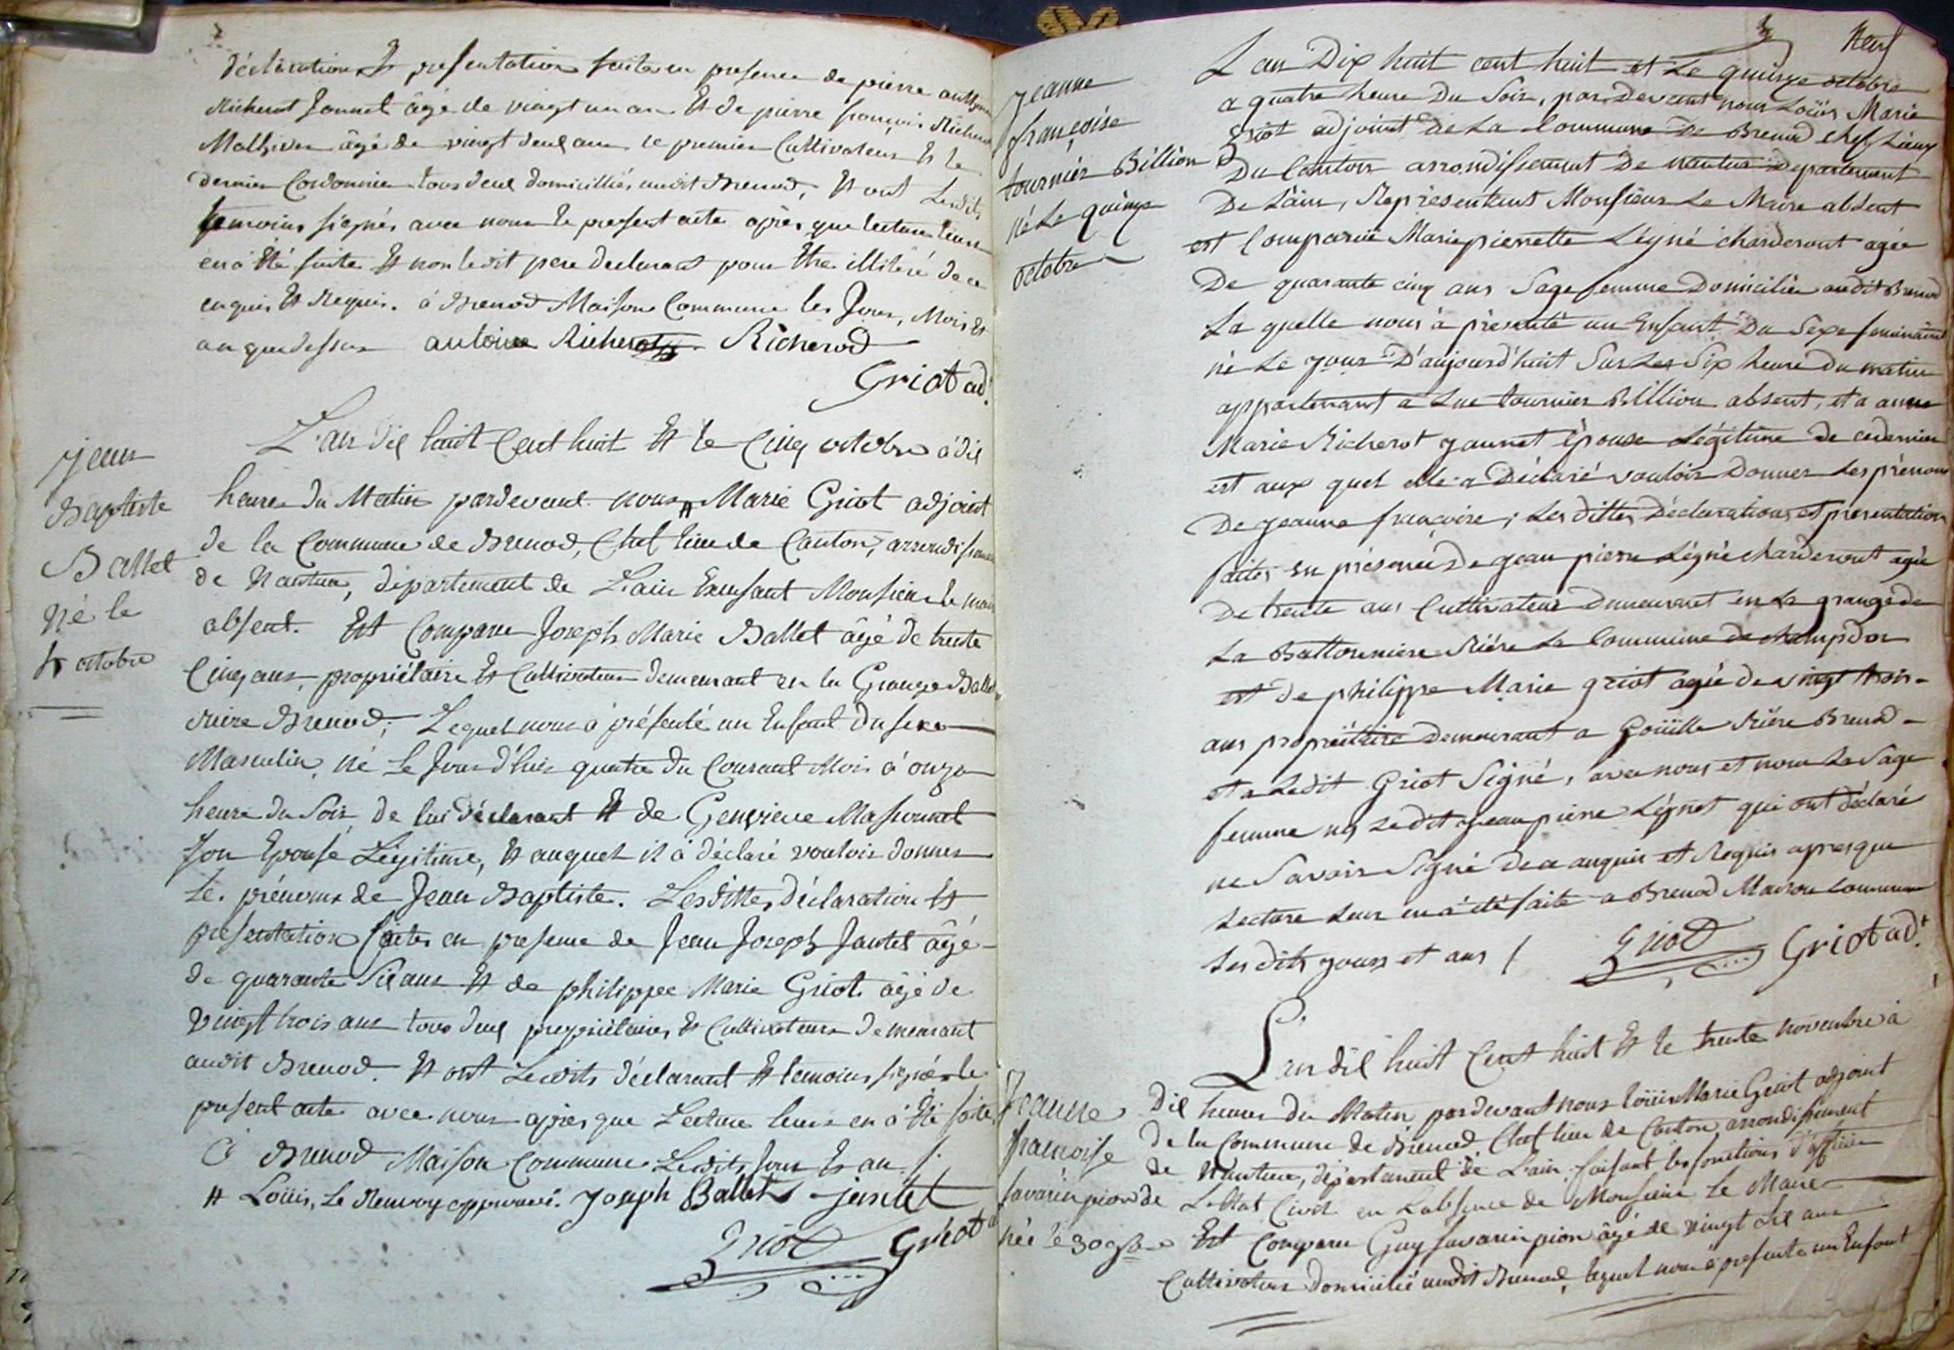 déclaration Et presentation faites en presence de pierre anthoine
Richerot Jonnet âgé de vingt un ans Et de pierre françois Richerod
Mathieu âgé de vingt deux ans le premier Cultivateur Et le
dernier Cordonnier tous deux domicilliés audit Brenod, Et ont Lesdits
temoins signés avec nous le present acte après que lecture leur
en à été faite Et non ledit pere declarant pour être illitéré de ce
enquis Et Requis. à Brenod Maison Commune les Jour, Mois Et
an que dessus antoine Richerot Richerod
Griot ad.
Jean
Baptiste
Ballet
Né le
4 octobre
L'an dix huit Cent huit Et le Cinq octobre à dix
heures du Matin pardevant nous # Marie Griot adjoint
de la Commune de Brenod, Chef lieu de Canton, arrondissement
de Nantua, département de L'ain Monsieur le maire
absent. Est Comparu Joseph Marie Ballet âgé de trente
Cinq ans, propriétaire Et Cultivateur demeurant en la Grange Ballet
riere Brenod; Lequel nous à présenté un Enfant du sexe
Masculin, né Le Jour d'hier quatre du Courant Mois à onze
heure du Soir de lui déclarant Et de Genevieve
son Epouse Légitime, Et auquel il à déclaré vouloir donner
les prénoms de Jean Baptiste. Lesdittes déclaration Et
presentation faites en presence de Jean Joseph Jantet âgé
de quarante Six ans Et de philippe Marie Griot âgé de
vingt trois ans tous deux propriétaires Et Cultivateurs demeurant
audit Brenod. Et ont Lesdits déclarant Et temoins signés le
present acte avec nous après que Lecture leur en à été faite
à Brenod Maison Commune Lesdits Jour Et an ./.
# Louis, Le Renvoy approuvé. Joseph Ballet jantet
Griot Griot ad
Neuf
jeanne
françoise
tournier Billion
né Le quinze
octobre
L an Dix huit cent huit et Le quinze octobre
a quatre heure Du Soir, par Devant nous Loüis Marie
Griot adjoint De La Commune De Brenod chef Lieux
Du Canton arrondissement De nantua Departement
De L'ain, Représentant Monsieur Le Maire absent
est Comparüe Marie pierrette Légné charderont agée
De quarante cinq ans Sage femme Domiciliée audit Brenod
La quelle nous à présenté un Enfant Du Sexe feminaint
né Le jour D'aujourd'huit Sur Les Six heure Du matin
appartenant a Luc tournier Billion absent, et a anne
Marie Richerot jaunet épouse Légitime de cedernier
est aux quel elle a Déclaré vouloir Donner Les prénoms
De jeanne françoise; Les dittes Déclarations et presentation
faites en présence De jean pierre Légné charderont agée
De trente ans Cultivateur Demeurant en La grange de
La Battonniere Riére La Commune de champdor
est de philippe Marie griot agée de vingt trois
ans propriétaire Demeurant a Goüille Riére Brenod
et a Ledit Griot Signé, avec nous et non La Sage
femme ny Ledit jean pierre Légnet qui ont déclaré
ne Savoir Signé de ce anquis et Requis apres que
Lecture Leur en à été faite a Brenod Maison Commune
Les dits jours et ans /. Griot Griot ad.t
Jeanne
françoise
savarin pion
née le 30 9bre
L'an dix huit Cent huit Et le trente novembre à
Dix heures du Matin pardevant nous loüis Marie Griot adjoint
de la Commune de Brenod Chef lieu de Canton arrondissement
de Nantua, département de L'ain faisant les fonctions d'officier
de L'etat Civil en L'absence de Monsieur le Maire
Est Comparu Guy Savarin pion âgé de vingt Six ans
Cultivateur domicilié audit Brenod, lequel nous à presenté un Enfant